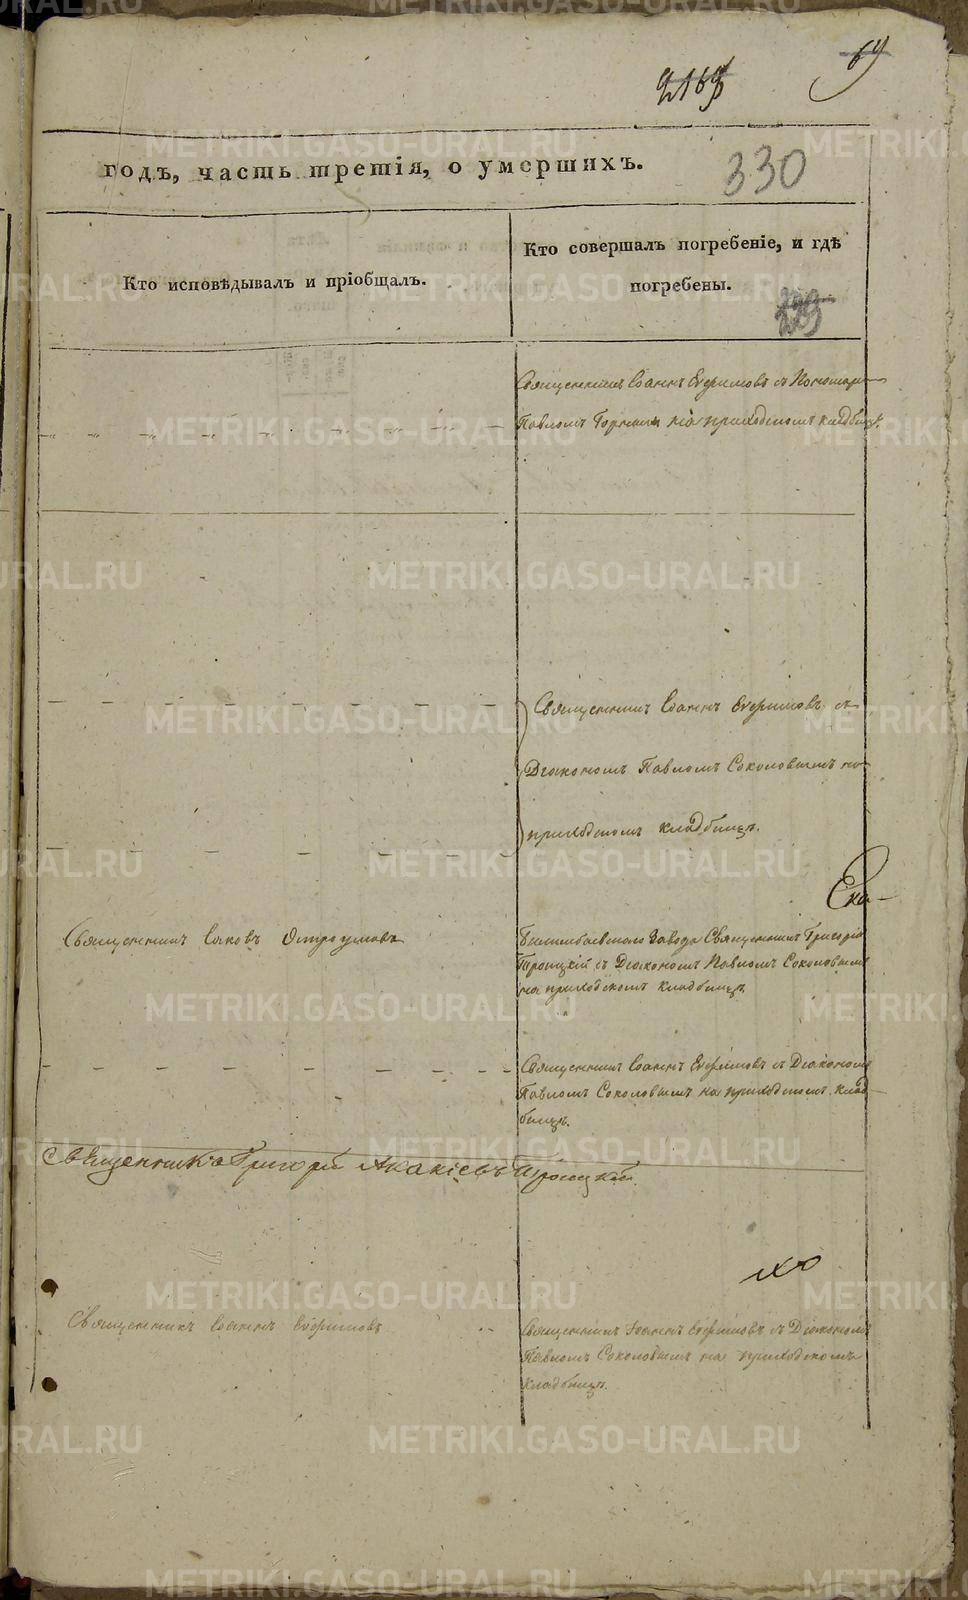 69
330
годъ, часть третія, о умершихъ.
Кто исповѣдывалъ и пріобщалъ.
Кто совершалъ погребеніе, и гдѣ
погребены.
Священникъ Іоаннъ Ефимовъ съ Пономаремъ
Павломъ на приходскомъ кладбищѣ.
Священникъ Іоаннъ Ефимовъ съ
Діакономъ Павломъ Соколовымъ на
приходскомъ кладбищѣ.
Священникъ Іаковъ Остроумовъ
Билимбаевскаго Завода Священникъ Григорій
Троицкій съ Діакономъ Павломъ Соколовымъ
на приходскомъ кладбищѣ.
Священникъ Іоаннъ Ефимовъ съ Діакономъ
Павломъ Соколовымъ на приходскомъ клад-
бищѣ.
Священникъ Григорій Акакіевъ Троицкій.
Священникъ Іоаннъ Ефимовъ
Священникъ Іоаннъ Ефимовъ съ Діакономъ
Павломъ Соколовымъ на приходскомъ
кладбищѣ.
METRIKI.GASO-URAL.RU